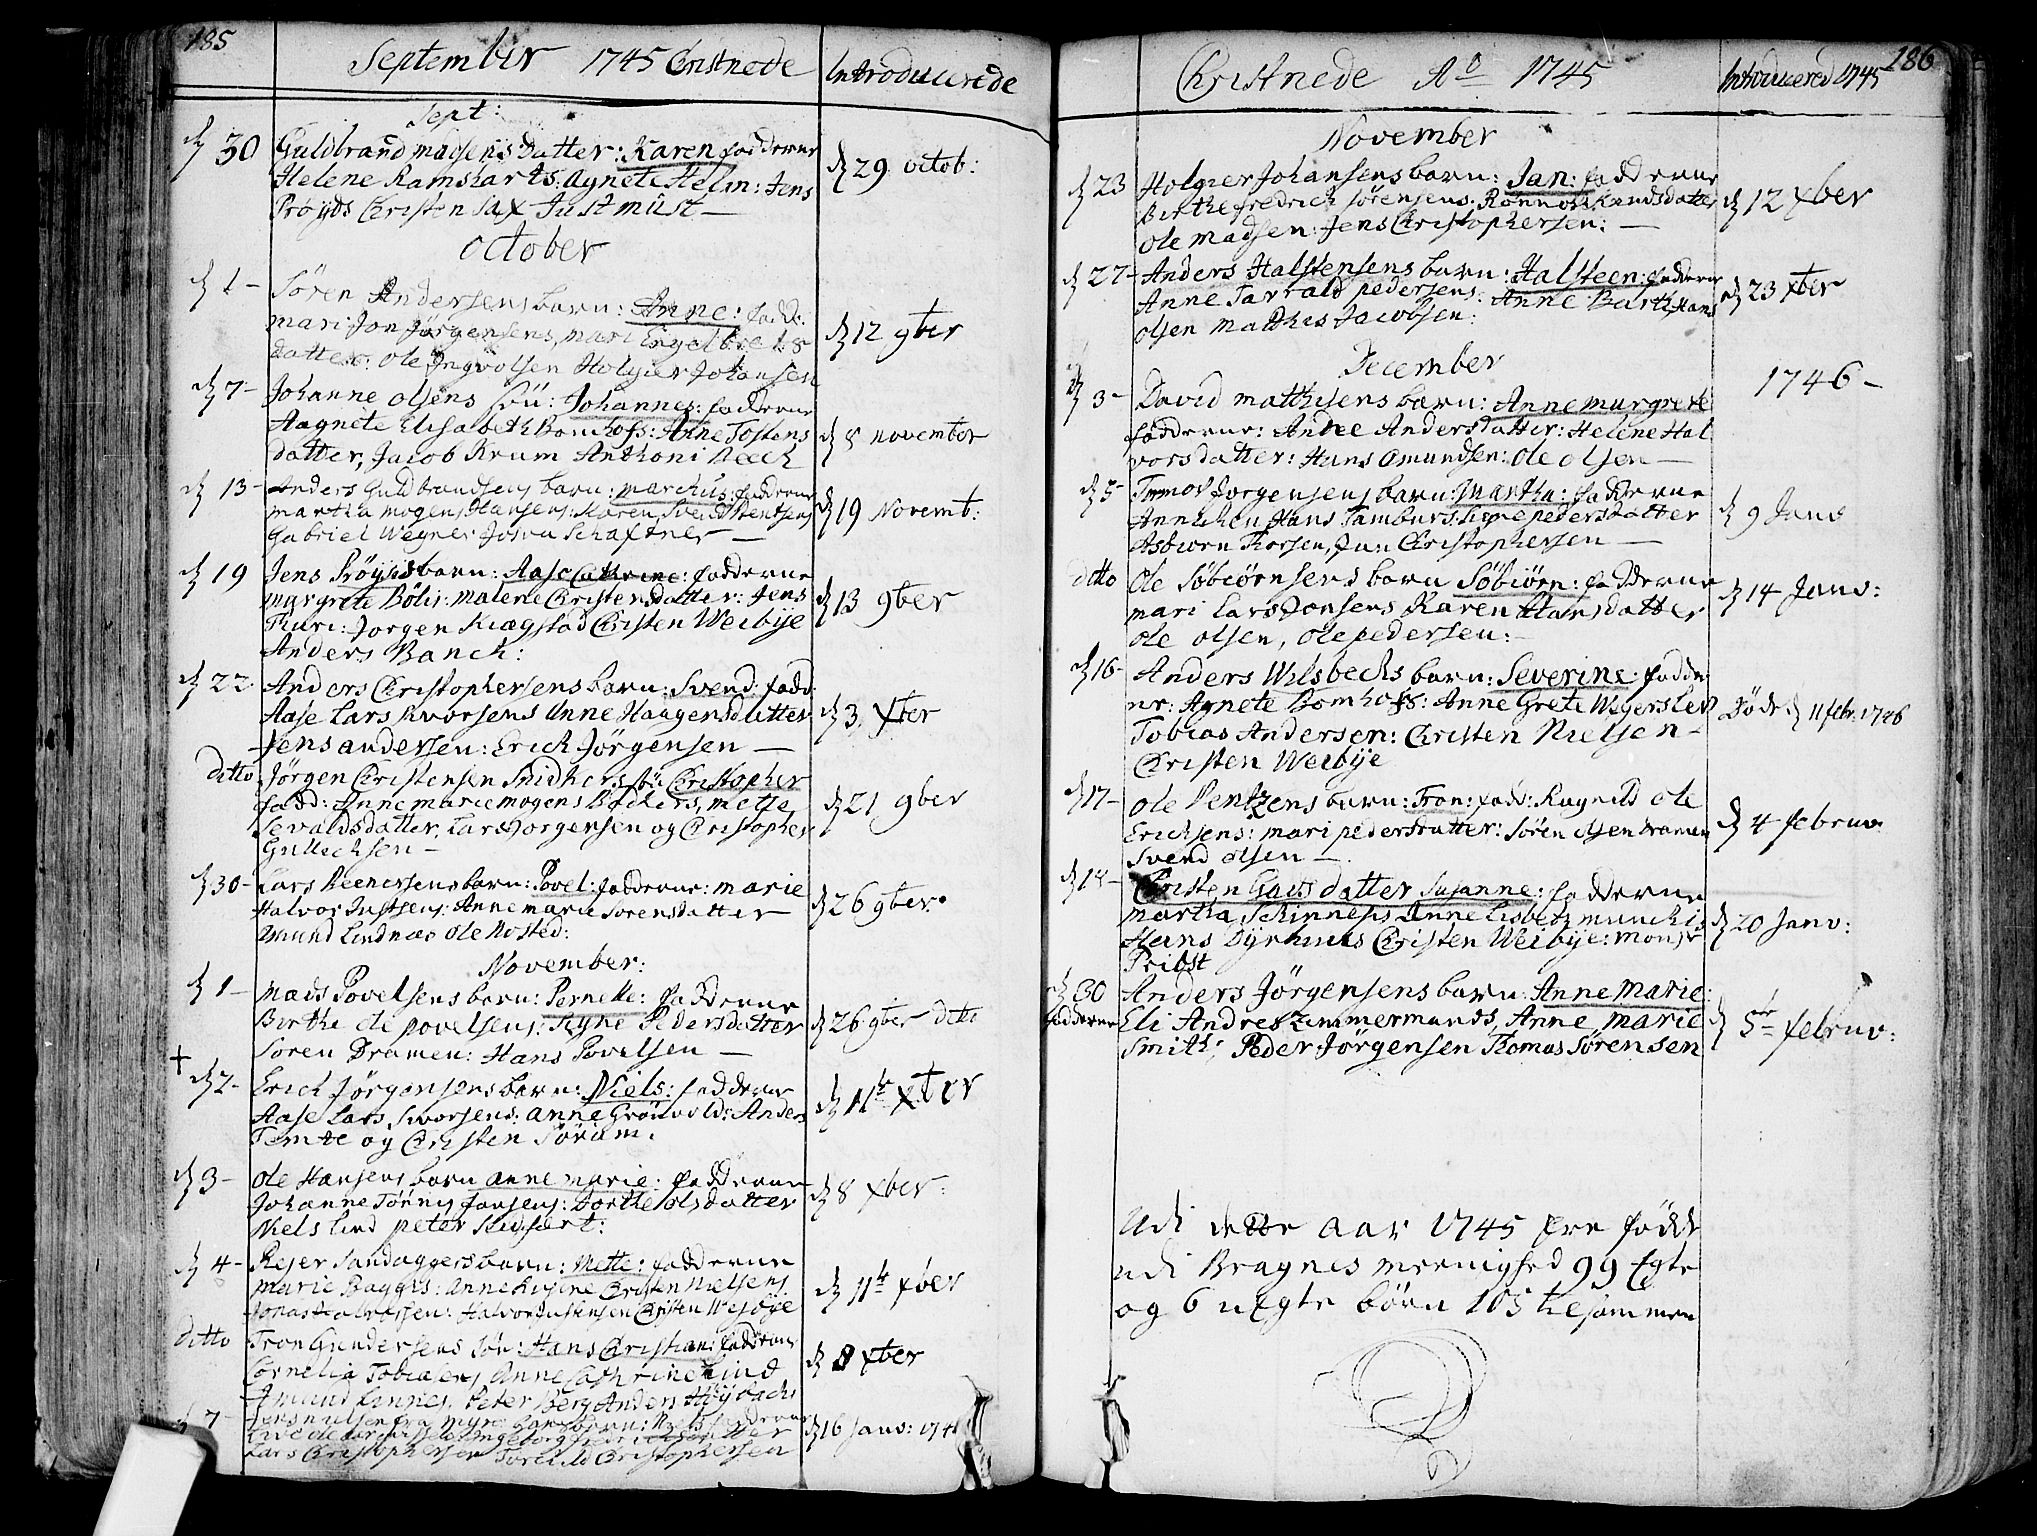 185
September 1745 Christnede Introducerede
Sept:
30 Guldbrand Madsens Datter: Karen fadderne
Helene Ramsharts: Agnete Helm: Jens
Prøyds Christen Sax Just Müst —
29 octob:
October
1 — Søren Andersens barn: Anne: fadd:
mari Jon Jørgensens, mari Engelbrets
datter: Ole Ingvolsen Holgier Johansen
12 9ber
7 — Johanne Olsens søn: Johannes: fadderne
Aagnete Elisabeth Bomhofs: Anne Tostens
datter, Jacob Krum Anthoni Beech
8 November
13 — Anders Guldbrandsens barn: Marchus: fadderne
martha mogens Hansens: Karen Svend Bentsens
Gabriel Wegner Josva Schaftner —
19 Novemt:
19 Jens Prøyds barn: Aase Cathrine: fadderne
Margrete Bølis: Malene Christensdatter: Jens
Thuri: Jorgen Kiægstad Christen Weibÿe
Anders Banch:
13 9ber
22 Anders Christophersens barn: Svend: fadd:
Aase Lars Iworsens Anne Haagensdatter
Jens andersen: Erich Jørgensen —
3 Xber
ditto Jørgen Christensen Smidhers søn Christopher
fadd: Anne marie mogens Backers, Mette
Sevaldsdatter, Lars Jorgensen og Christopher
Gullichsen —
21 9ber
30 — Lars Reenersens barn: Povel: fadderne: marie
Halvor Justsens: Anne marie Sorensdatter
Amund Lindnæs Ole Rosted:
26 9ber
November:
1 — Mads Povelsens barn: Pernelle: fadderne
Birthe ole povelsens: Signe Pedersdatter
Soren Dramen: Hans Povelsen —
26 9ber ditto
+
2 — Erich Jørgensens barn: Niels: fadderne
Aase Lars Iworsens: anne Grönvolds: Anders
Temte og Christen Sörum.
11te Xber
3 — Ole Hansens barn anne marie: fadderne
Johanne Tönnes Jansens: Dorthe olsdatter
Niels Lind peter
8 xber:
4 — Rejer Sandaggers barn: Mette: fadderne
Marie Bagges: Anne Christen Nielsens
Jonas Halvorsen: Halvor Justensen Christen Weybÿe
11te xber
ditto Tron Gundersens søn: Hans Christian: fadderne
Cornelia Tobiæsens Anne Cathrine Lind
Amund Linnes, Peter Berg Anders Höÿbachs
8 xber
7 — Jens nielsen fra barn: Niels fadderne

Lars Christophersen Torkild Christophersen
16 Janv: 174
186
Christnede Ao 1745 Introducered 1745
November
23 Holgier Johansens barn: Jan: fadderne
Birthe fredrich Sörensens: Rönnou Knudsdatter
Ole Madsen: Jens Christophersen: —
12 Xber
27 — Anders Halstensens barn: Halsteen: fadderne
Anne Tarrald pedersens: Anne Barth Hans
olsen Matthes Jacobsen:
23 xber
December
1746 —
3 — David Matthisens barn: Anne Margrete
fadderne: Andre Andersdatter: Helene Hal
vorsdatter: Hans Omundsen: Ole olsen —
5 — Temov Jorgensens barn: Martha: fadderne
Annichen Hans Tamburs: pedersdatter
Asbiorn Thorsen, Jan Christophersen —
9 Janv
ditto Ole Söbiörnsens barn Söbiörn: fadderne
mari Lars Jonsens Karen Hansdatter
Ole olsen, Ole pedersen: —
14 Janv:
16 — Anders Wilsbechs barn: Severine: fadde
ne: Agnete Bomhofs: Anne Grete Wegersløf
Tobias Andersen: Christen Nielsen —
Christen Weibÿe
Døde 11 febr: 1746
17 — Ole Bentzens barn: Tron: fadd: Ragnild Ole
Erichsens: mari pedersdatter: Sören olsen Dramen
Svend olsen —
4 februv
18 — Christen Gads datter Susanne: fadderne
Martha Schinnes Anne Lisbeth munchis
Hans Dÿrhuus Christen Weibÿe: monsr
Pribst
20 Janv:
30 Anders Jörgensens barn: Anne Marie:
fadderne Eli Andres Zimmermands, Anne marie
Smith; Peder Jörgensen Thomas Sörensen
5te februv:
Udi dette aar 1745 ere födde
udi Bragnes meenighed 99 Egte
og 6 uegte börn 105 tilsammen